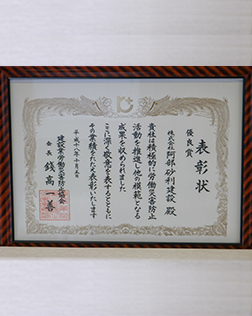 表彰状
優良賞
株式会社阿部砂利建設 殿
貴社は積極的に労働災害防止
活動を推進し他の模範となる
成果を収められました
ここに深く敬意を表するとともに
その業績をたたえ表彰いたします
平成十八年十月五日
建設業労働災害防止協会
会長 銭高一善